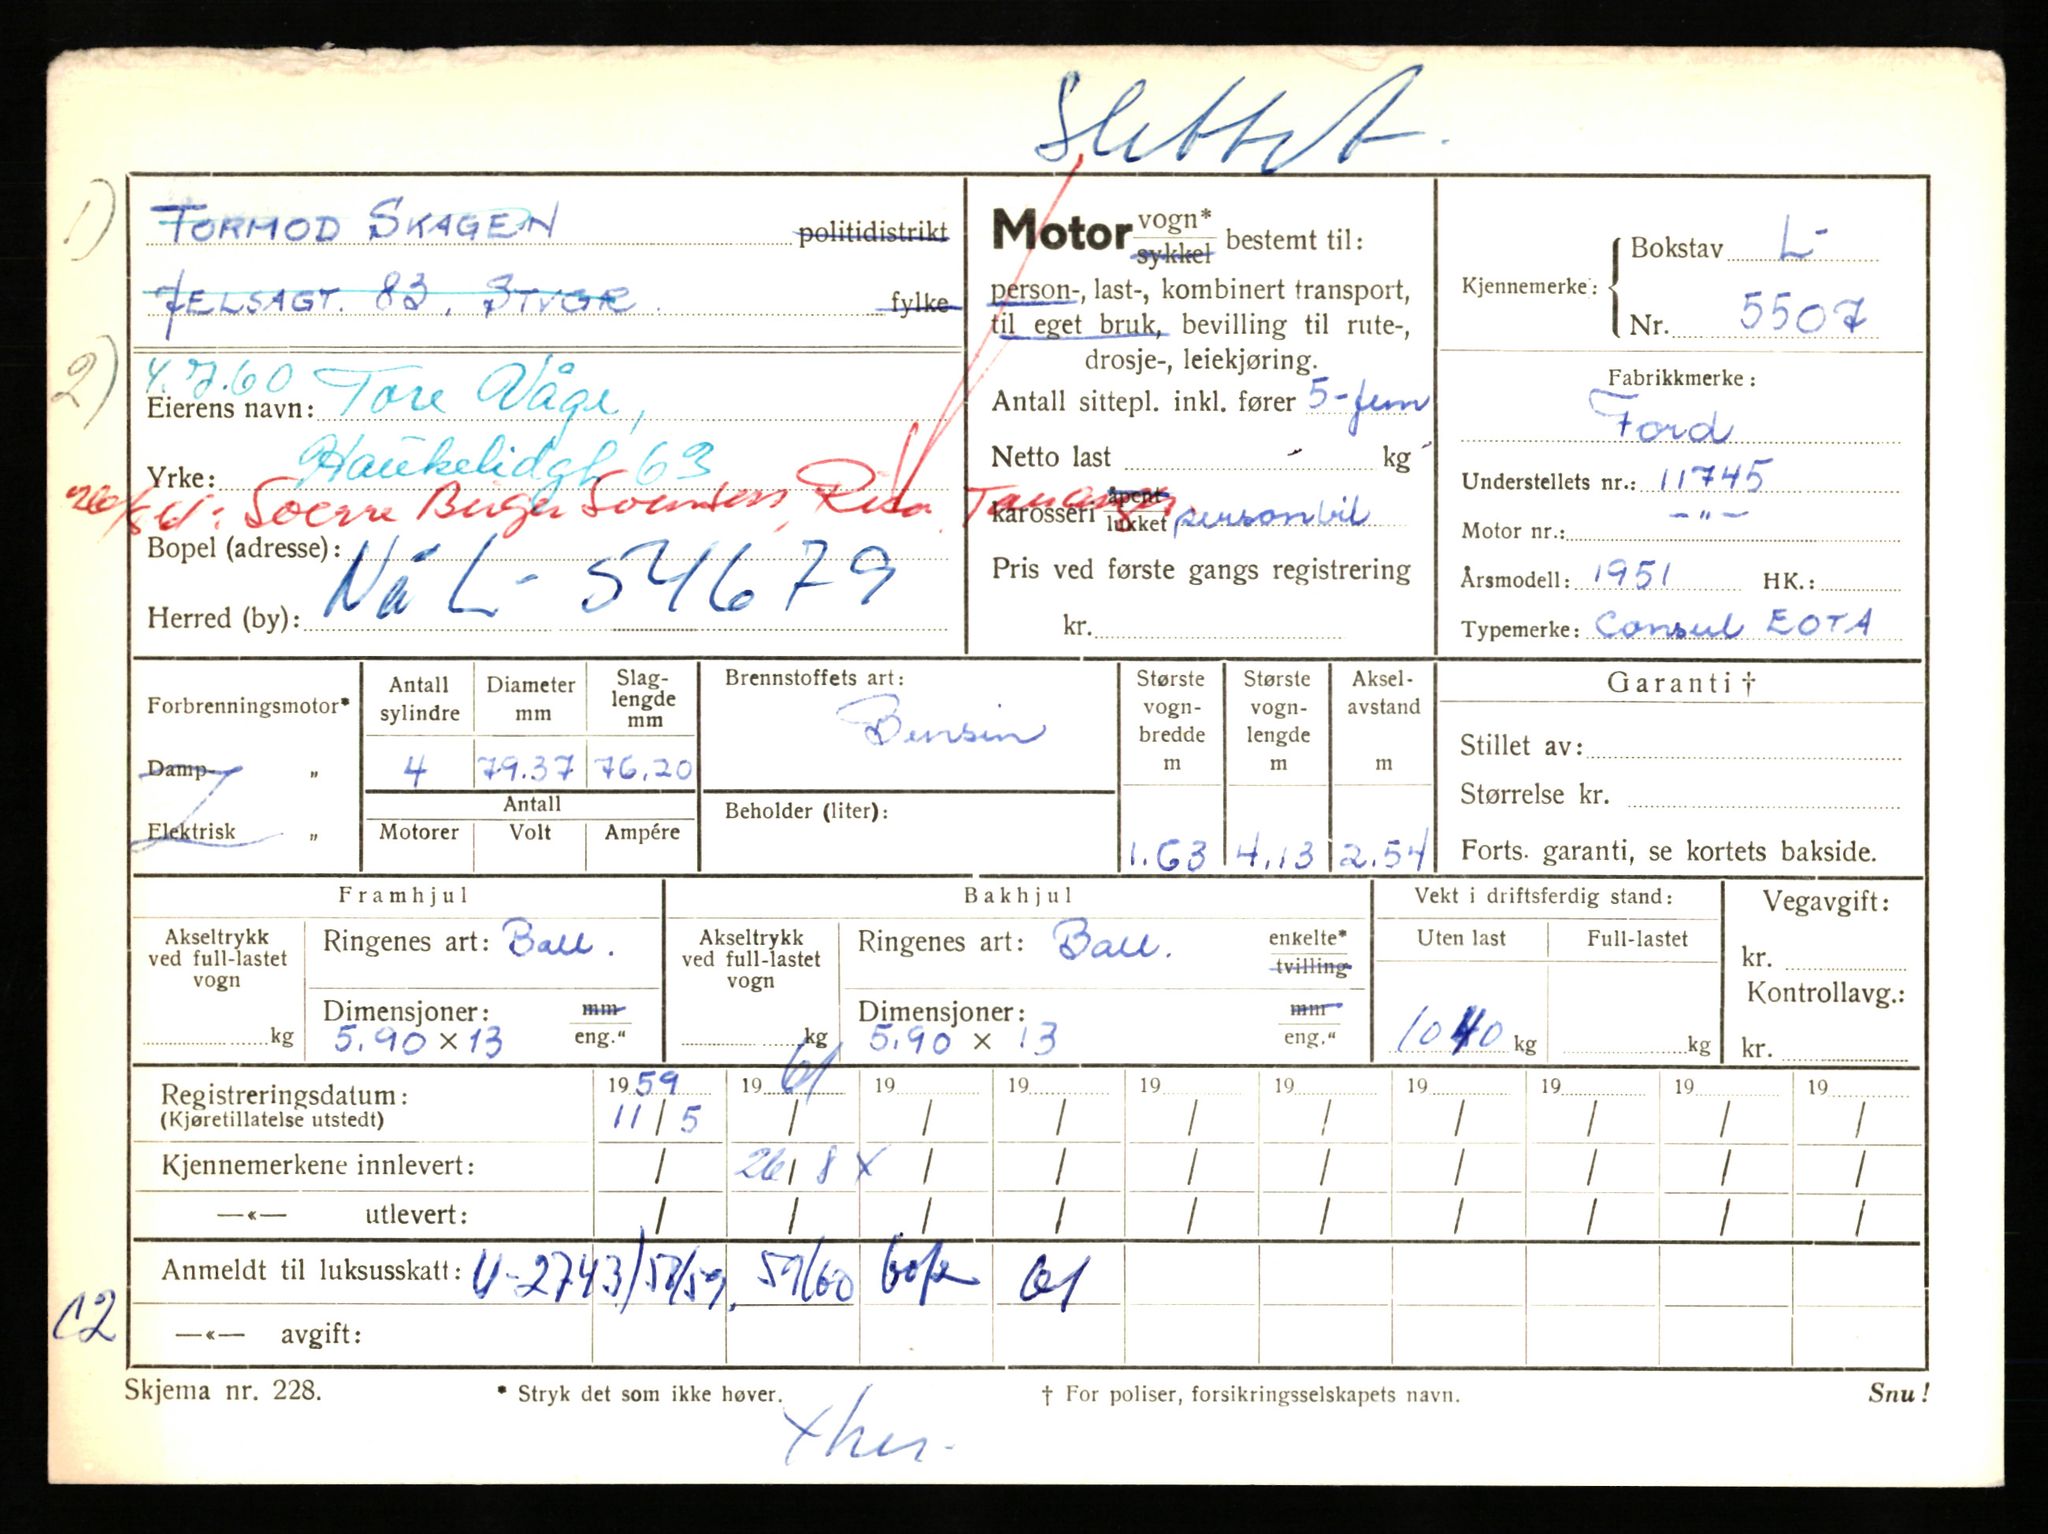 Slettet.
1) TORMOD SKAGEN politidistrikt
JELSAGT. 83, STVGR. fylke
2) 4.7.60 Tore Våge,
Eierens navn:
Haukelidgt 63
Yrke:
26/8 61: Soerre Birger Soensen, Risa, Tananger
Bopel (adresse):
Nå L- 54679
Herred (by):
Motor vogn* sykkel bestemt til:
person-, last-, kombinert transport,
til eget bruk, bevilling til rute-,
drosje-, leiekjøring.
Antall sittepl. inkl. fører 5-fem
Netto last - kg
karosseri åpent lukket personbil
Pris ved første gangs registrering
kr.
Kjennemerke: Bokstav L-
Nr. 5507
Fabrikkmerke:
Ford
Understellets nr.: 11745
Motor nr.: -"-
Årsmodell: 1951 HK.:
Typemerke: Consul EOTA
Forbrenningsmotor*
Damp- "
Elektrisk "
Antall sylindre Diameter mm Slag-lengde mm
4 79.37 76.20
Antall
Motorer Volt Ampére
Brennstoffets art:
Bensin
Beholder (liter):
Største vogn-bredde m Største vogn-lengde m Aksel-avstand m
1.63 4.13 2.54
Garanti †
Stillet av:
Størrelse kr.
Forts. garanti, se kortets bakside.
Framhjul
Akseltrykk ved full-lastet vogn
kg
Ringenes art: Ball.
Dimensjoner: mm
5.90 x 13 eng."
Bakhjul
Akseltrykk ved full-lastet vogn
kg
Ringenes art: Ball. enkelte* tvilling
Dimensjoner: mm
5.90 x 13 eng."
Vekt i driftsferdig stand:
Uten last Full-lastet
1040 kg kg
Vegavgift:
kr.
Kontrollavg.:
kr.
Registreringsdatum: 1959 1961 19 19 19 19 19 19 19 19
(Kjøretillatelse utstedt) 11/5 / / / / / / / / /
Kjennemerkene innlevert: / 26/8 x / / / / / / / /
—«— utlevert: / / / / / / / / / /
Anmeldt til luksusskatt: U-2743/58/59, 59/60 61
12 —«— avgift:
Skjema nr. 228. * Stryk det som ikke høver. † For poliser, forsikringsselskapets navn. Snu!